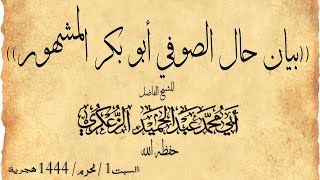 ((بيان حال الصوفي أبو بكر المشهور))
للشيخ الفاضل
أبي محمد عبد الحميد الزعكري
حفظه الله
السبت 1 / محرم / 1444 هجرية